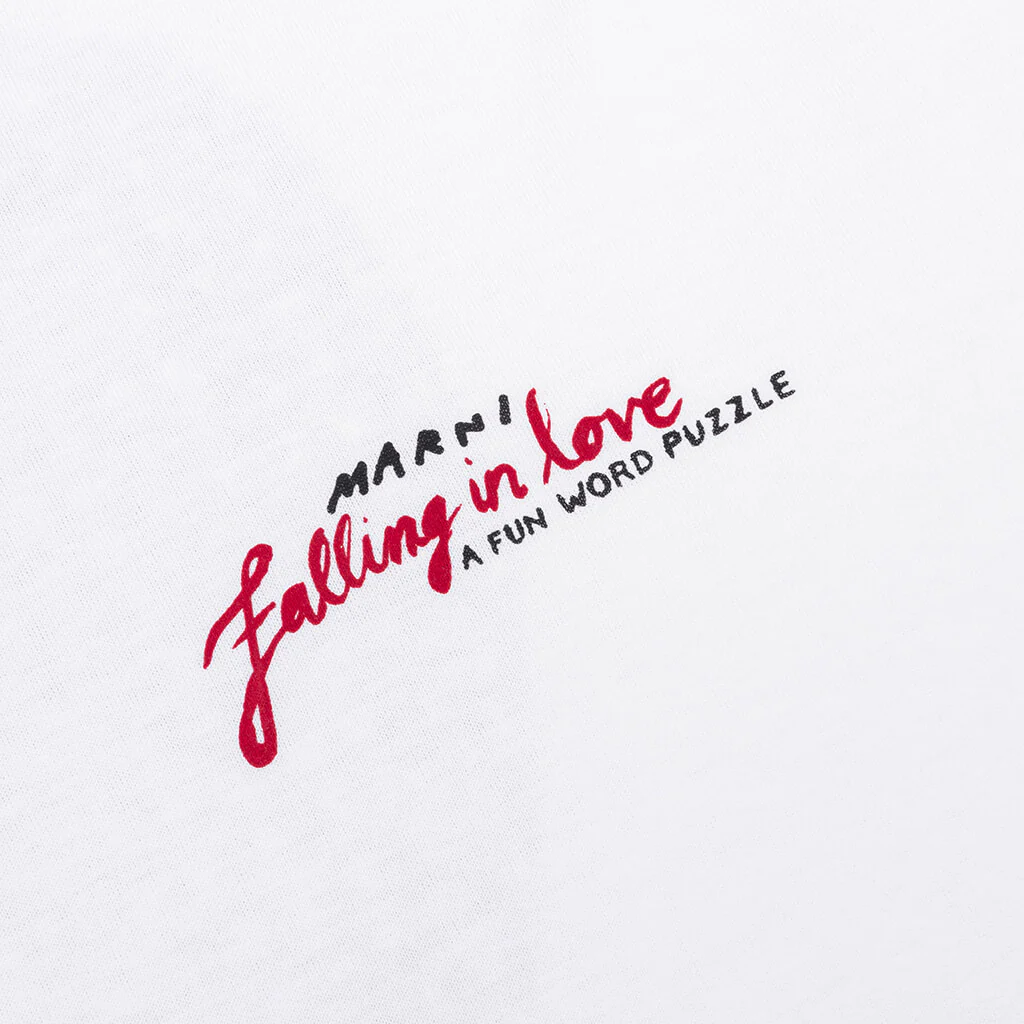 MARNI
falling in love
A FUN WORD PUZZLE